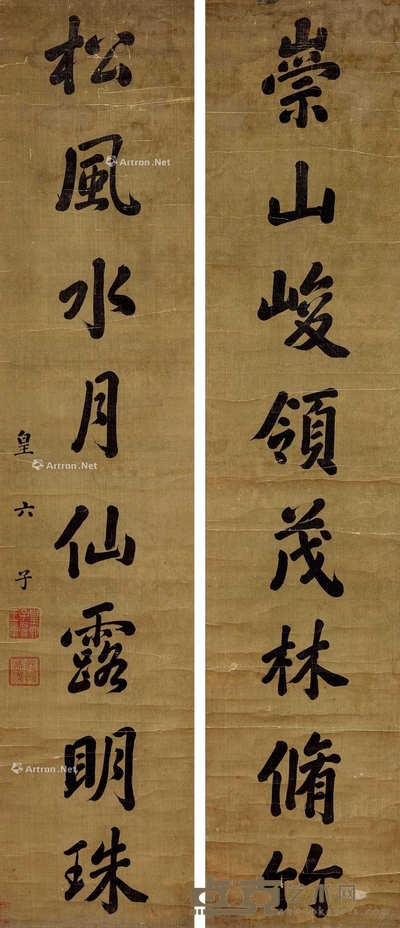 崇山峻領茂林脩竹
松風水月仙露明珠
皇六子
Artron.Net
Artron.Net
Artron.Net